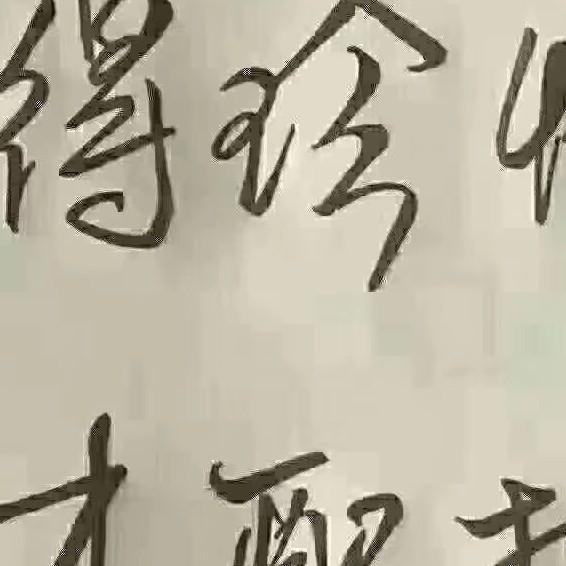 得珍
才配